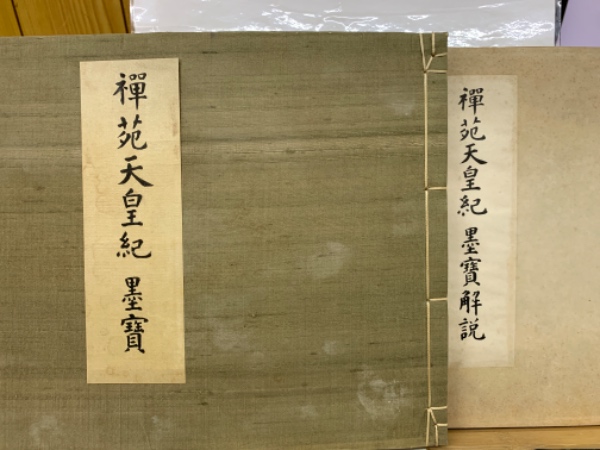 禪苑天皇紀 墨寶
禪苑天皇紀 墨寶解説